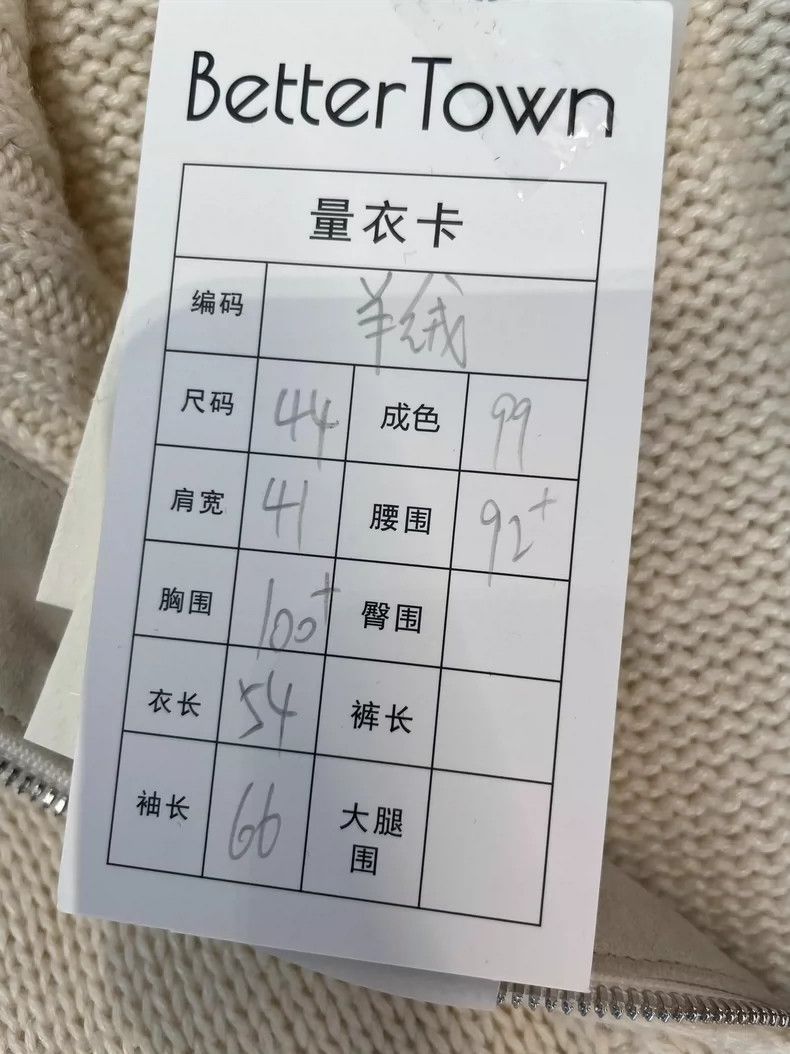 BetterTown
量衣卡
编码 羊绒
尺码 44 成色 99
肩宽 41 腰围 92+
胸围 100+ 臀围
衣长 54 裤长
袖长 66 大腿
围